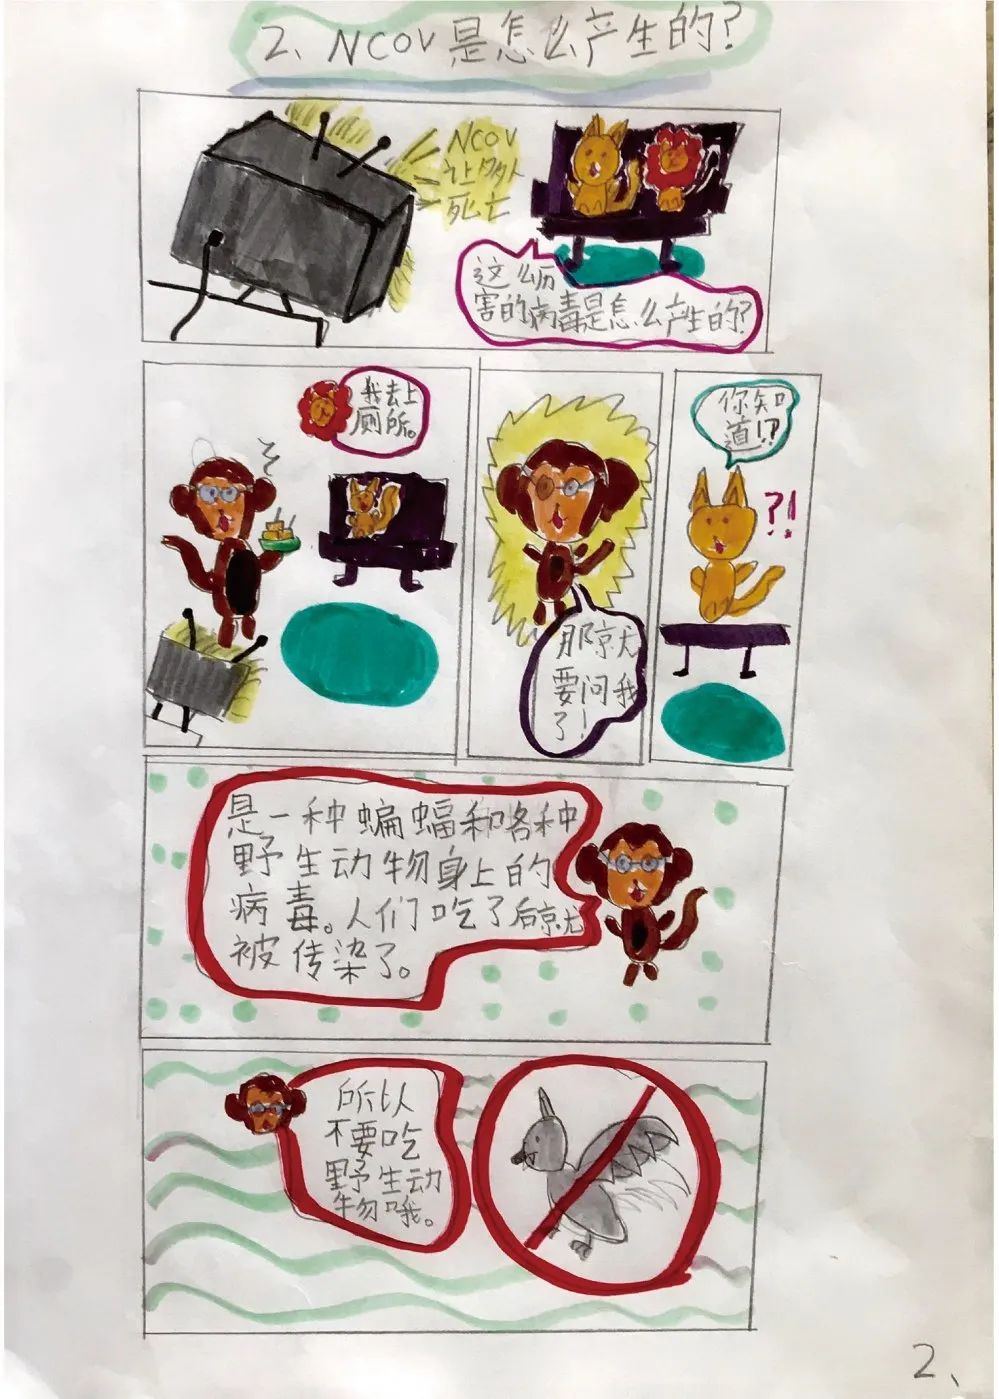 2、NCOV是怎么产生的？
NCOV
让多人
死亡
这么厉
害的病毒是怎么产生的？
我去上
厕所。
那就
要问我
了！
你知
道！？
?!
是一种蝙蝠和各种
野生动物身上的
病毒。人们吃了后就
被传染了。
所以
不要吃
野生动
物哦。
2、